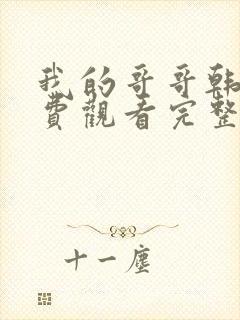 我的哥哥韩
费观看完整
十一尘